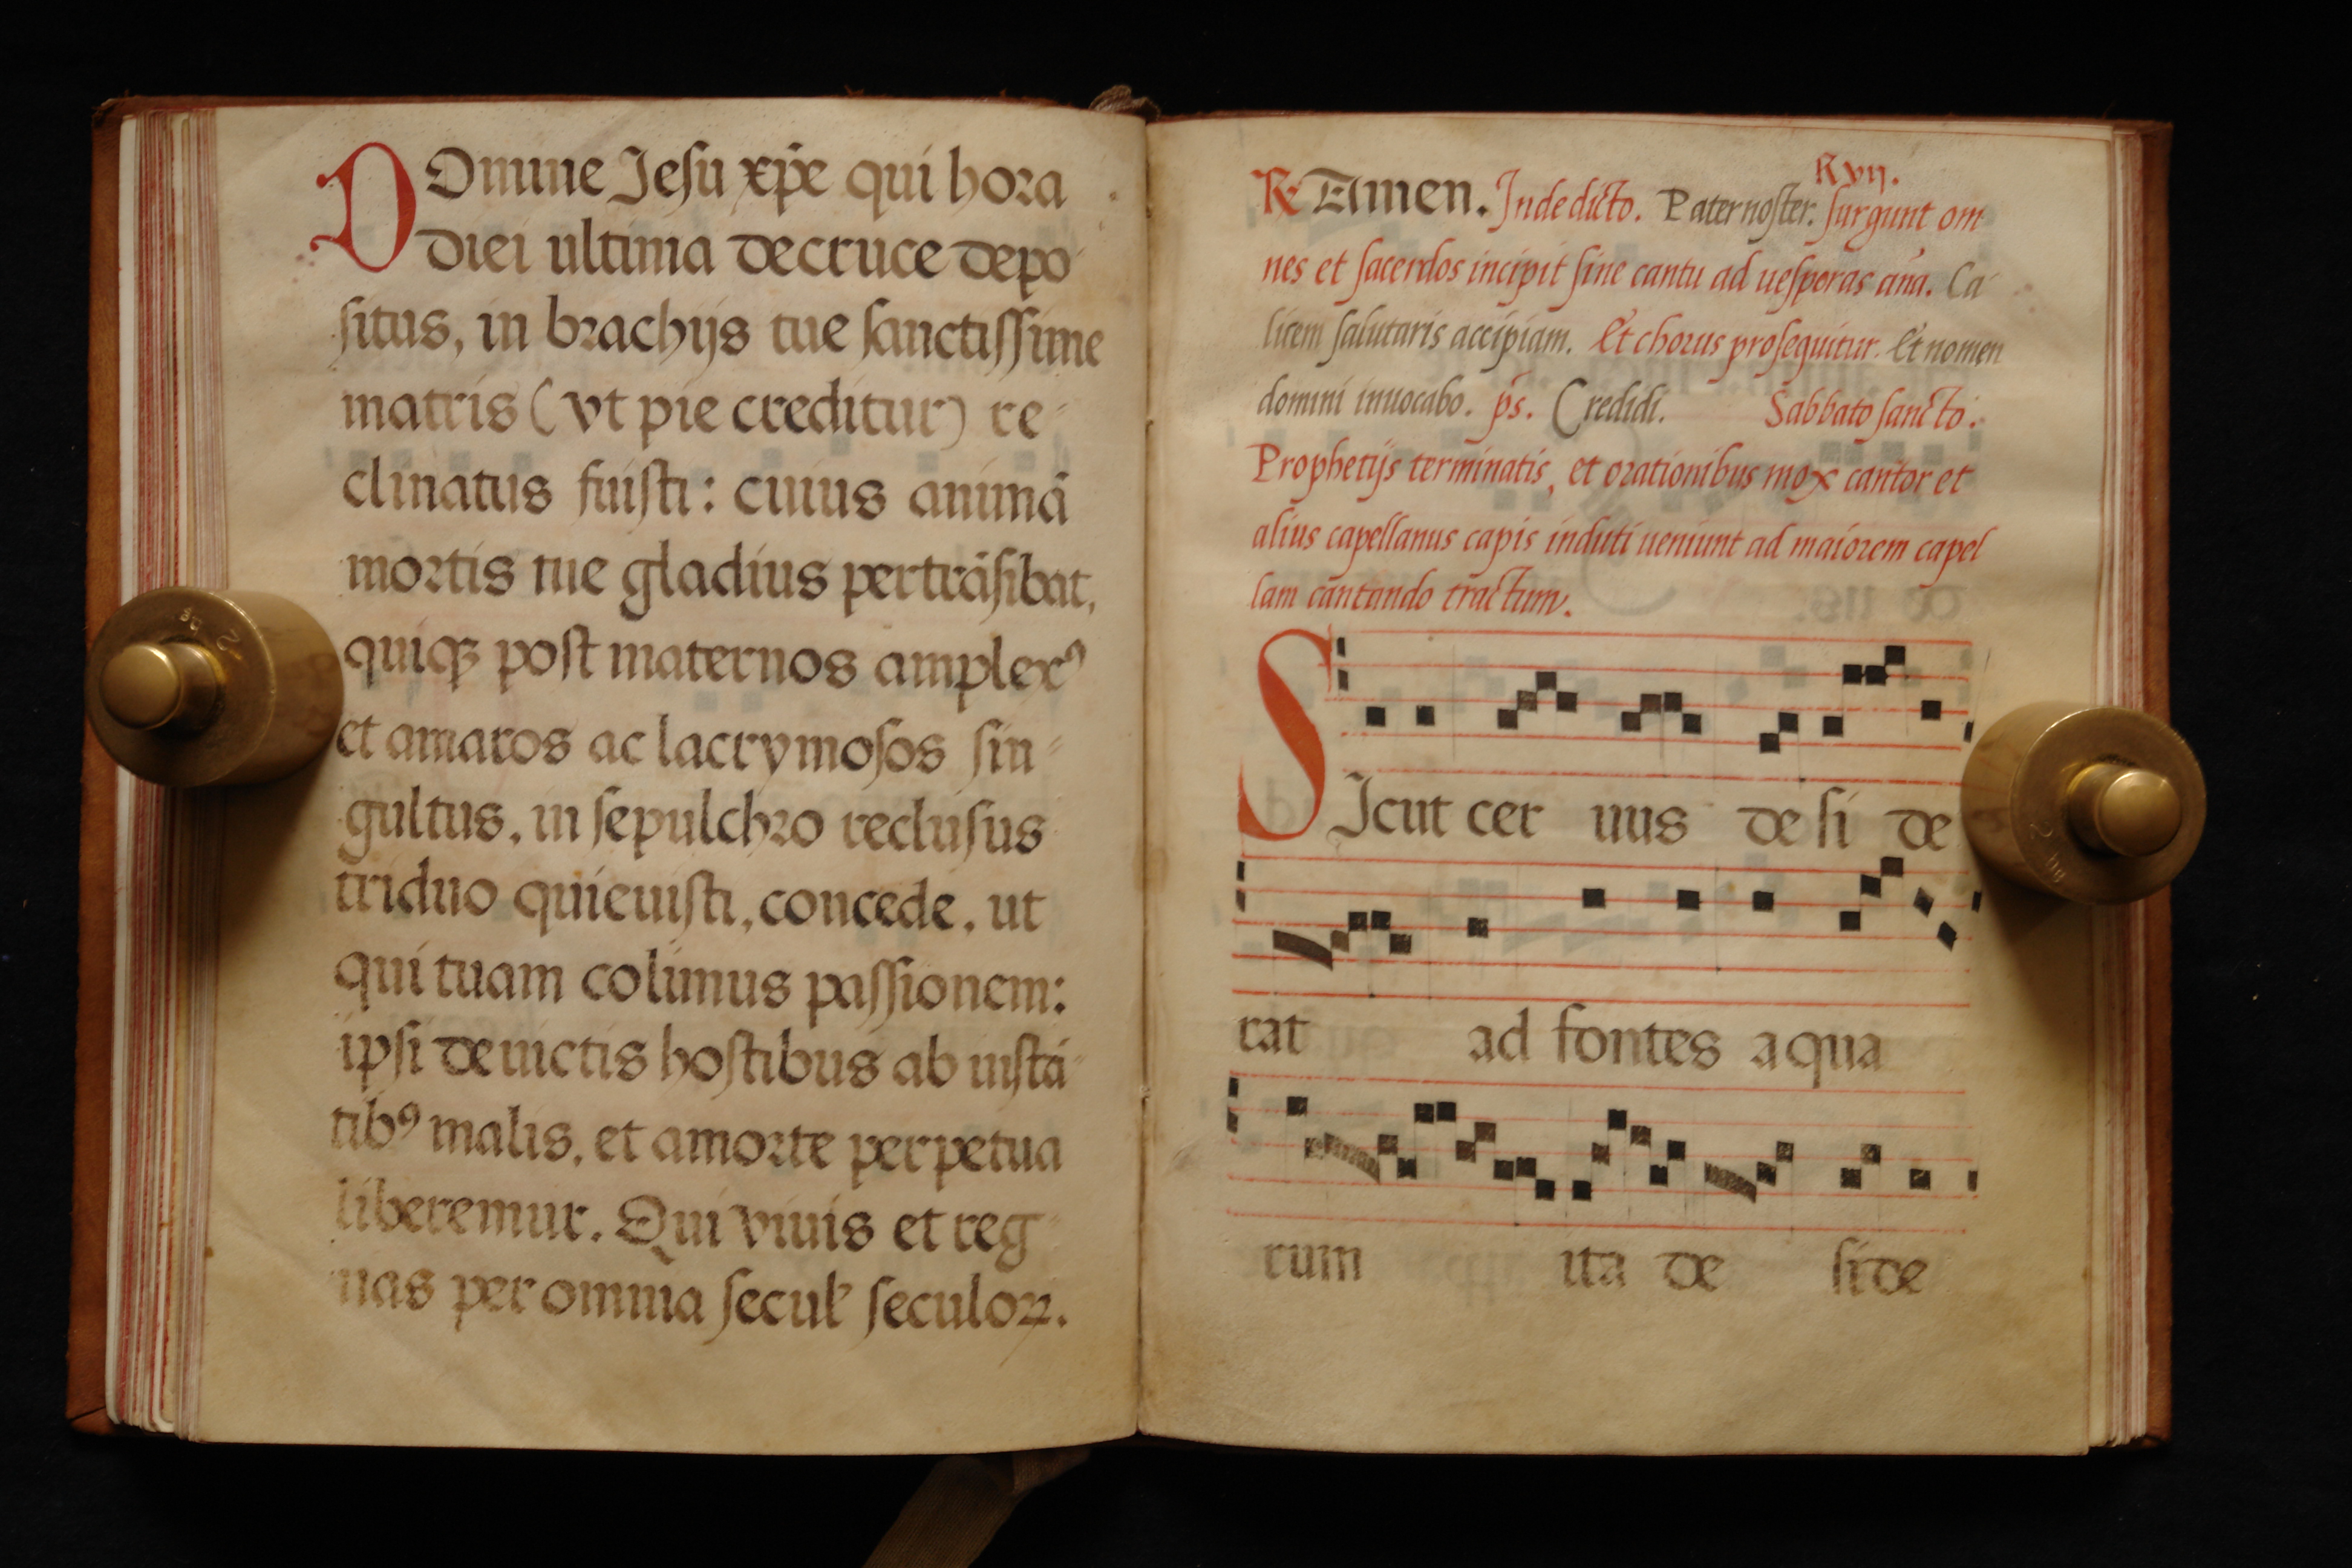 DOmine Jesu xp̄e qui hora
diei ultima de cruce depo
situs, in brachijs tue sanctissime
matris (vt pie creditur) re-
clinatus fuisti: cuius animā
mortis tue gladius pertrāsibat,
quiqȝ post maternos amplexꝰ
et amaros ac lacrymosos sin-
gultus, in sepulchro reclusus
triduo quieuisti, concede, ut
qui tuam colimus passionem:
ipsi deuictis hostibus ab instā
tibꝰ malis, et a morte perpetua
liberemur. Qui viuis et reg-
nas per omnia secul' seculoꝝ.
R vij.
℟ Amen. Inde dicto. Pater noster. surgunt om
nes et sacerdos incipit sine cantu ad uesperas anā. Ca
licem salutaris accipiam. Et chorus prosequitur. Et nomen
domini inuocabo. ps. Credidi. Sabbato sancto.
Prophetijs terminatis, et orationibus mox cantor et
alius capellanus capis induti ueniunt ad maiorem capel
lam cantando tractum.
SIcut cer uus de si de
rat ad fontes aqua
rum ita de side